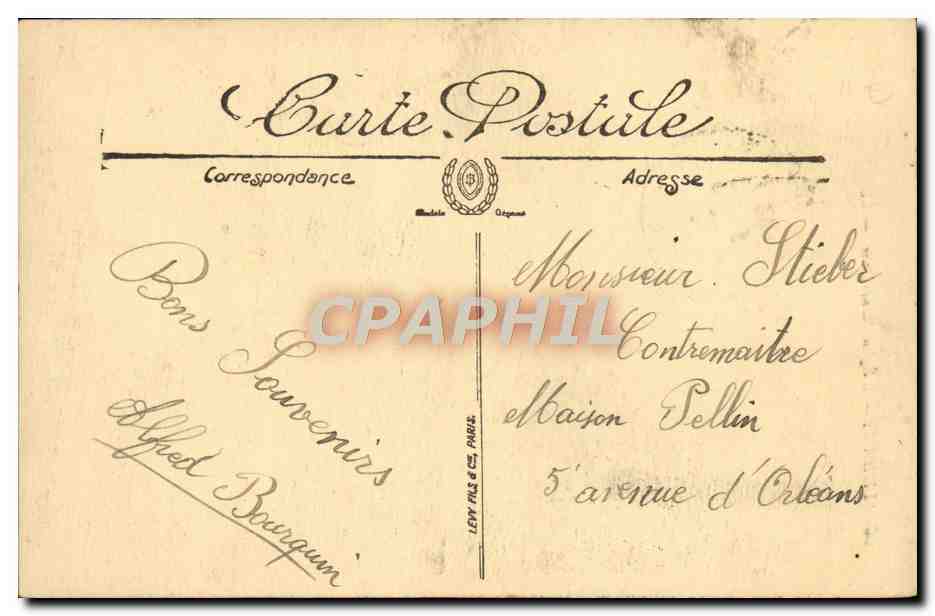 Carte Postale
Correspondance
Adresse
Modèle Déposé
Bons Souvenirs
Alfred Bourquin
Monsieur Stieber
Contremaitre
Maison Pellin
5 avenue d'Orléans
LEVY FILS & Cie, PARIS.
CPAPHIL